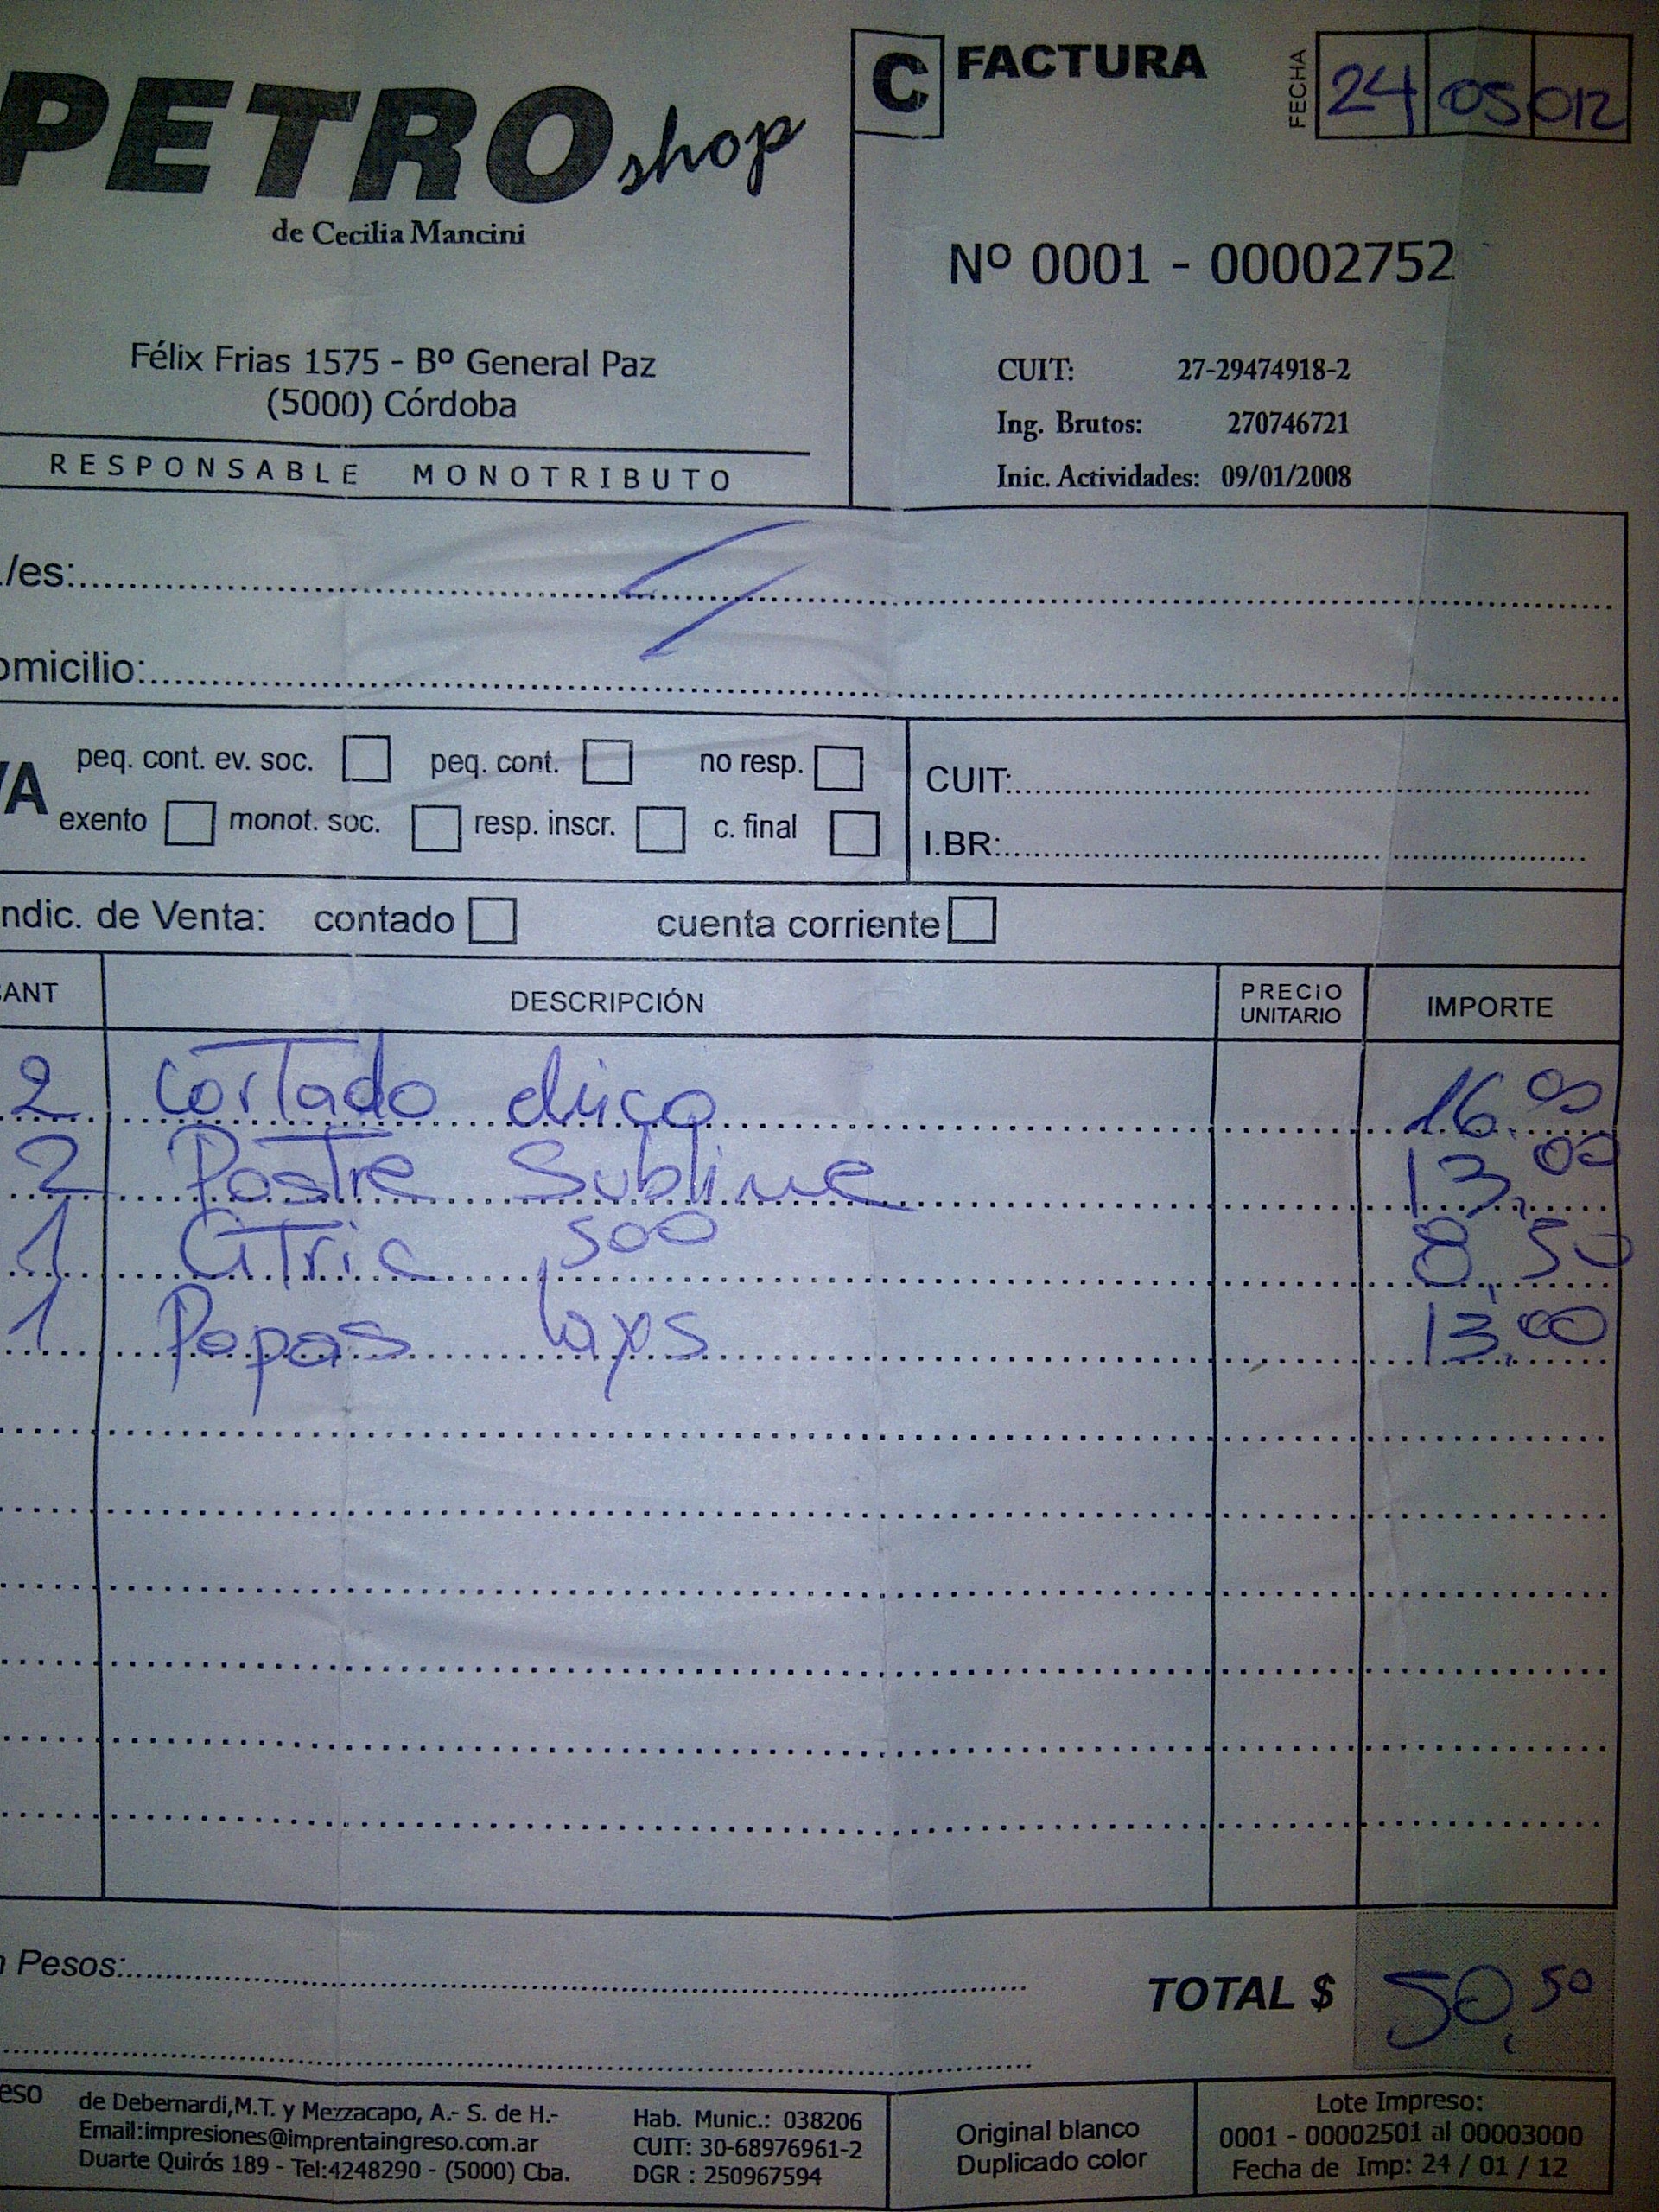 PETRO shop
de Cecilia Mancini
Félix Frias 1575 - Bº General Paz
(5000) Córdoba
RESPONSABLE MONOTRIBUTO
C FACTURA
FECHA 24 05 012
Nº 0001 - 00002752
CUIT: 27-29474918-2
Ing. Brutos: 270746721
Inic. Actividades: 09/01/2008
/es:
omicilio:
VA
peq. cont. ev. soc. peq. cont. no resp.
exento monot. soc. resp. inscr. c. final
CUIT:
I.BR:
ndic. de Venta: contado cuenta corriente
CANT DESCRIPCIÓN PRECIO UNITARIO IMPORTE
2 Cortado chico 16.00
2 Postre Sublime 13,00
1 Citric 500 8,50
1 Papas lays 13,00
n Pesos:
TOTAL $ 50,50
eso
de Debernardi,M.T. y Mezzacapo, A.- S. de H.-
Email:impresiones@imprentaingreso.com.ar
Duarte Quirós 189 - Tel:4248290 - (5000) Cba.
Hab. Munic.: 038206
CUIT: 30-68976961-2
DGR : 250967594
Original blanco
Duplicado color
Lote Impreso:
0001 - 00002501 al 00003000
Fecha de Imp: 24 / 01 / 12